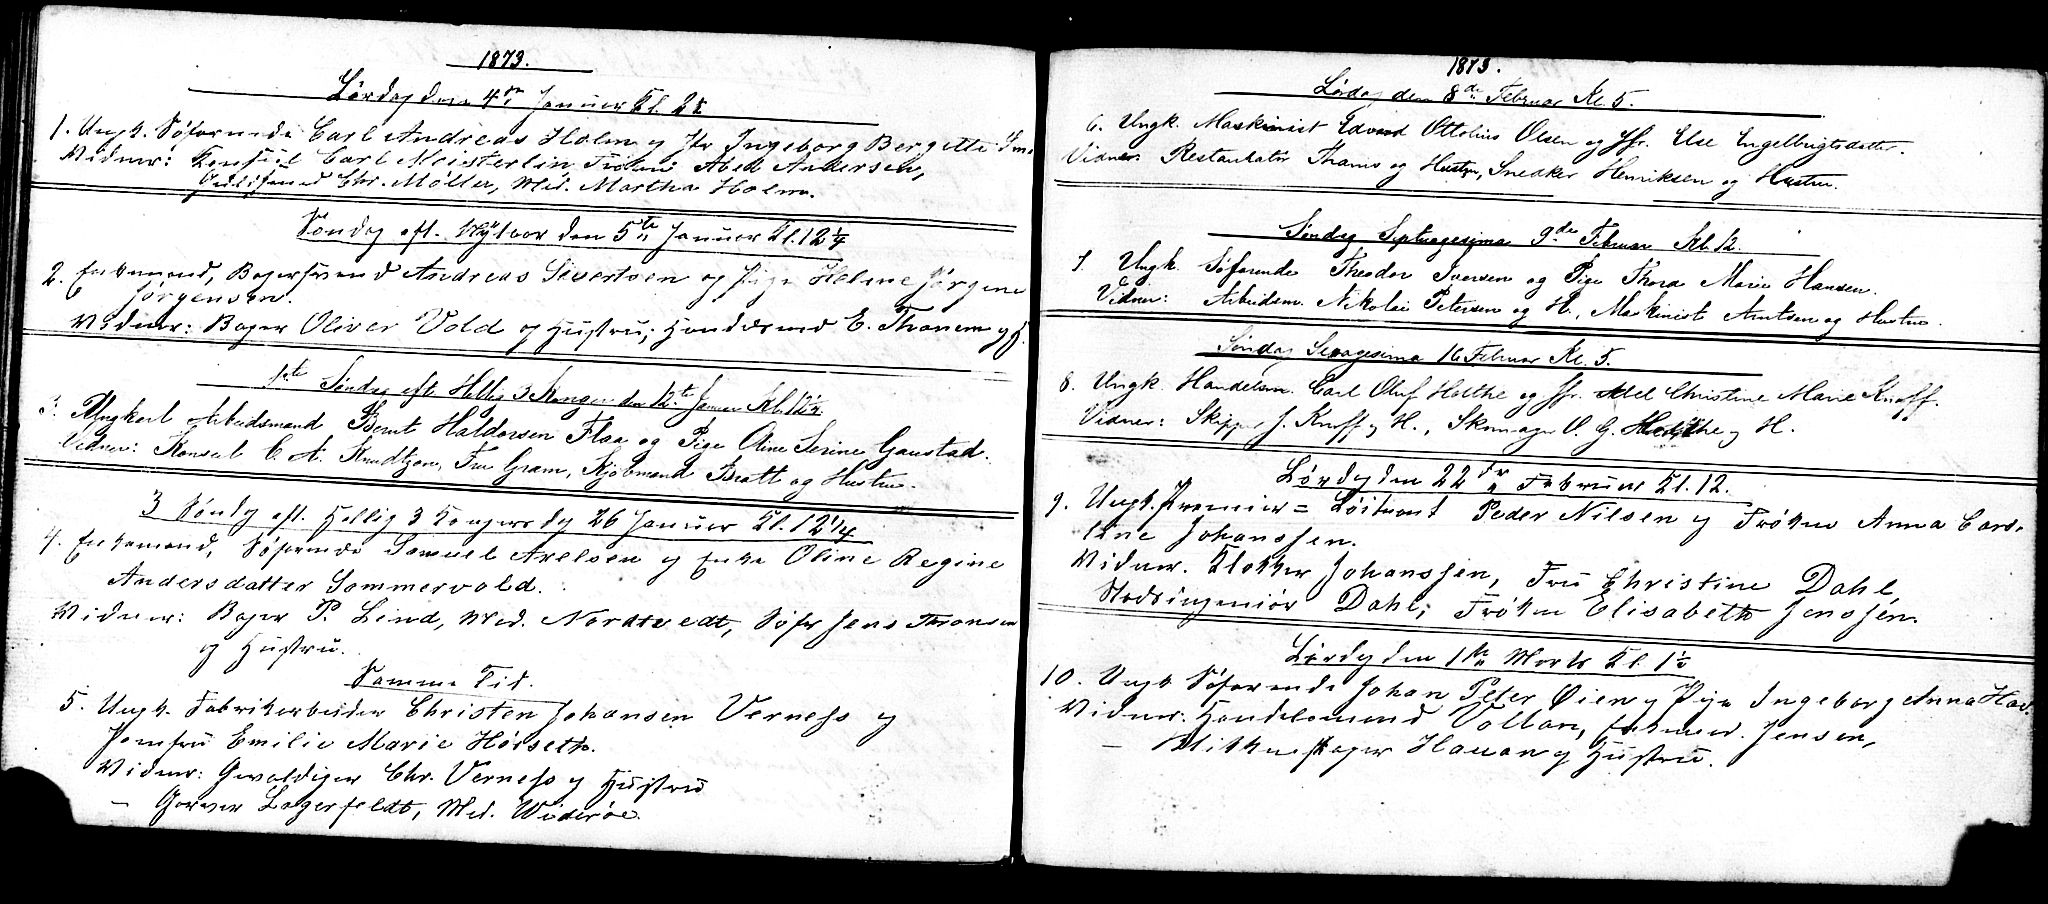 1873.
Lørdag den 4de Januar Kl. 2
1. Ungk. Søfarende Carl Andreas Holm og Jfr Ingeborg Bergette
Vidner: Konsul Carl Meisterlin, Frøken Abel Andersen,
Chr. Møller, Md. Martha Holm.
Søndag eft. Nytaar den 5te Januar Kl. 12 1/4
2. Enkemand, Bagersvend Andreas Sivertsen og Pige Heline Jørgine
Jørgensen.
Vidner: Bager Oliver Vold og Hustru, Handelsmd E. Thanem og H.
1ste Søndag eft. Hellig 3 Konger den 12te Januar Kl. 12 1/4
3. Ungkarl Arbeidsmand Bernt Haldorsen Flaa og Pige Oline Serine Gaustad.
Vidner: Konsul C. A. Knudtzon, Fru Gram, Kjøbmand Bratt og Hustru.
3 Søndg eft. Hellig 3 Kongersdg 26 Januar Kl. 12 1/4
4. Enkemand, Søfarende Samuel Axelsen og Enke Oline Regine
Andersdatter Sommervold.
Vidner: Bager P. Lind, Md. Nordtvedt, Søfar Jens Thonsen
og Hustru.
Samme Tid.
5. Ungk. Fabrikarbeider Christen Johansen Verness og
Jomfru Emilie Marie Hørseth.
Vidner: Gevaldiger Chr. Verness og Hustru
– Garver Lagerfeldt, Md. Widerøe.
1873.
Lørdag den 8de Februar Kl. 5.
6. Ungk. Maskinist Edvard Ottolius Olsen og Jfr. Else Engelbrigtsdatter.
Vidner: Restauratør Thams og Hustru, Snedker Henriksen og Hustru.
Søndag Septuagesima 9de Februar Kl. 12.
7. Ungk. Søfarende Theodor Iversen og Pige Thora Marie Hansen.
Vidner: Arbeidsm. Nikolai Petersen og H., Maskinist Arntsen og Hustru.
Søndag Sexagesima 16 Februar Kl. 5.
8. Ungk. Handelsm. Carl Oluf Holthe og Jfr. Christine Marie Knoff.
Vidner: Skipper J. Knoff og H., Skomager O. G. Holthe og H.
Lørdg den 22de Februar Kl. 12.
9. Ungk. Premier= Løitnant Peder Nilsen og Frøken Anna Caro-
line Johanssen.
Vidner. Klokker Johanssen, Fru Christine Dahl,
Stadsingeniør Dahl, Frøken Elisabeth Jenssen.
Lørdg den 1ste Marts Kl. 1 1/2
10. Ungk Søfarende Johan Peter Øien og Pige Ingeborg Anna
Vidner. Handelsmand Vollan, Enkemd. Jensen,
– Hauan og Hustru.